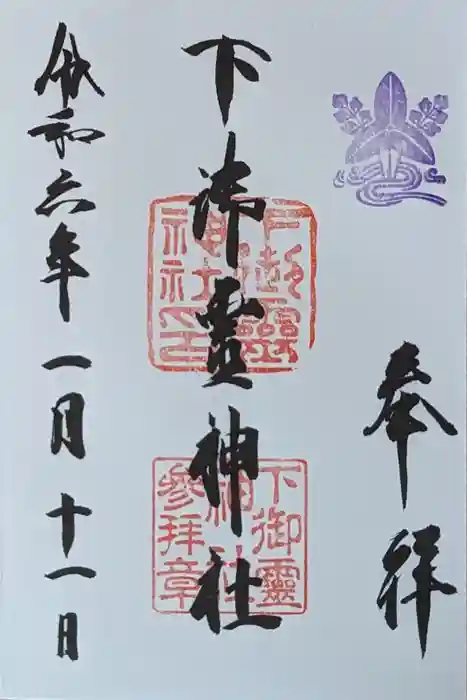 奉拝
下御霊神社
下御靈
神社印
下御靈
神社
參拝章
令和六年一月十一日